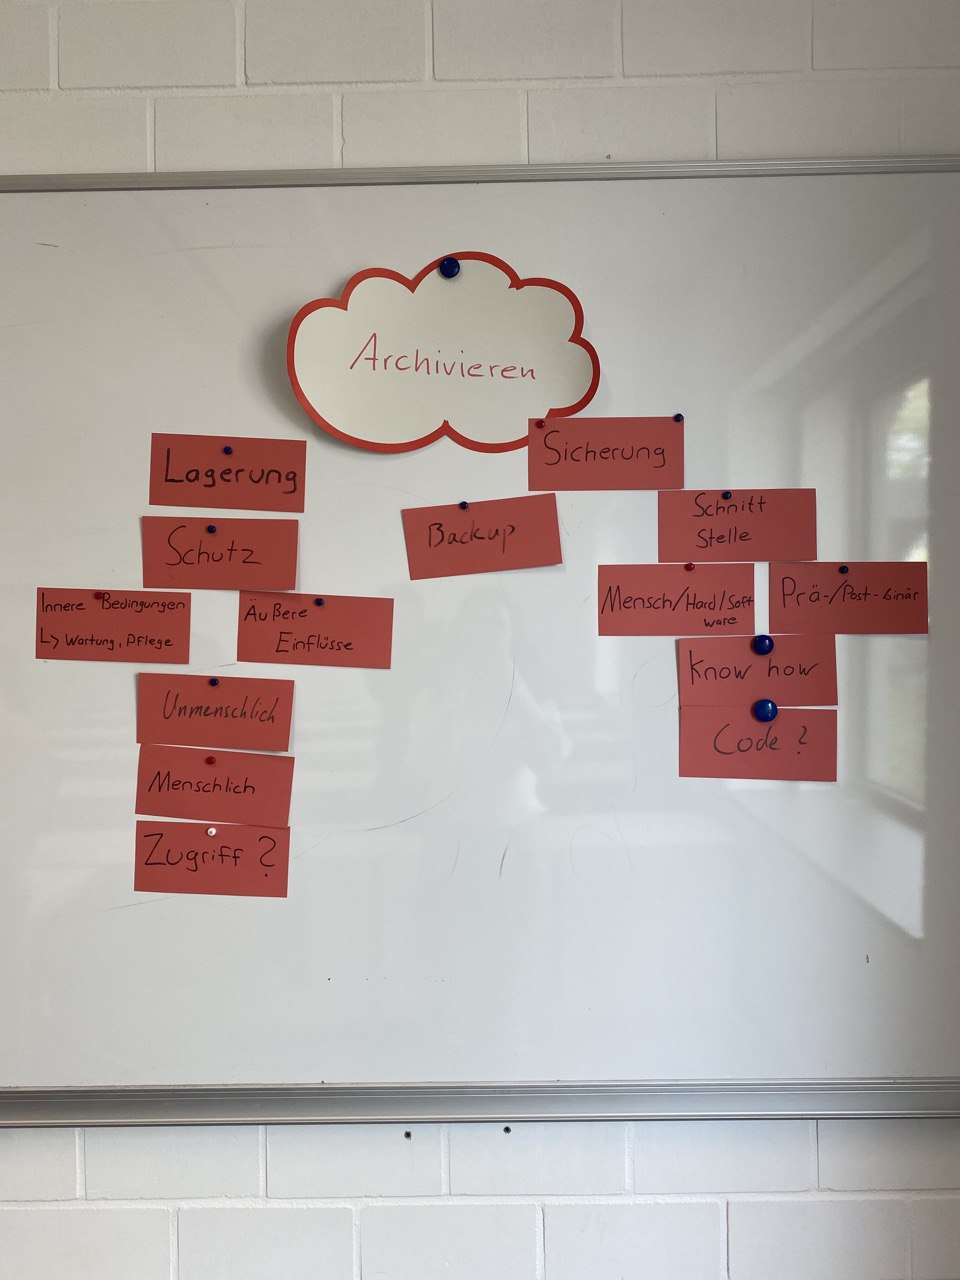 Archivieren
Lagerung
Schutz
Innere Bedingungen
↳ Wartung, Pflege
Äußere
Einflüsse
Unmenschlich
Menschlich
Zugriff ?
Backup
Sicherung
Schnitt
Stelle
Mensch/Hard/Soft
ware
Prä-/Post-binär
Know how
Code ?